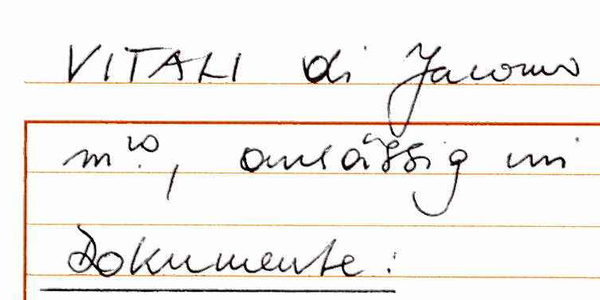 VITALI di Jacomo
m.ro, ansässig in
Dokumente: